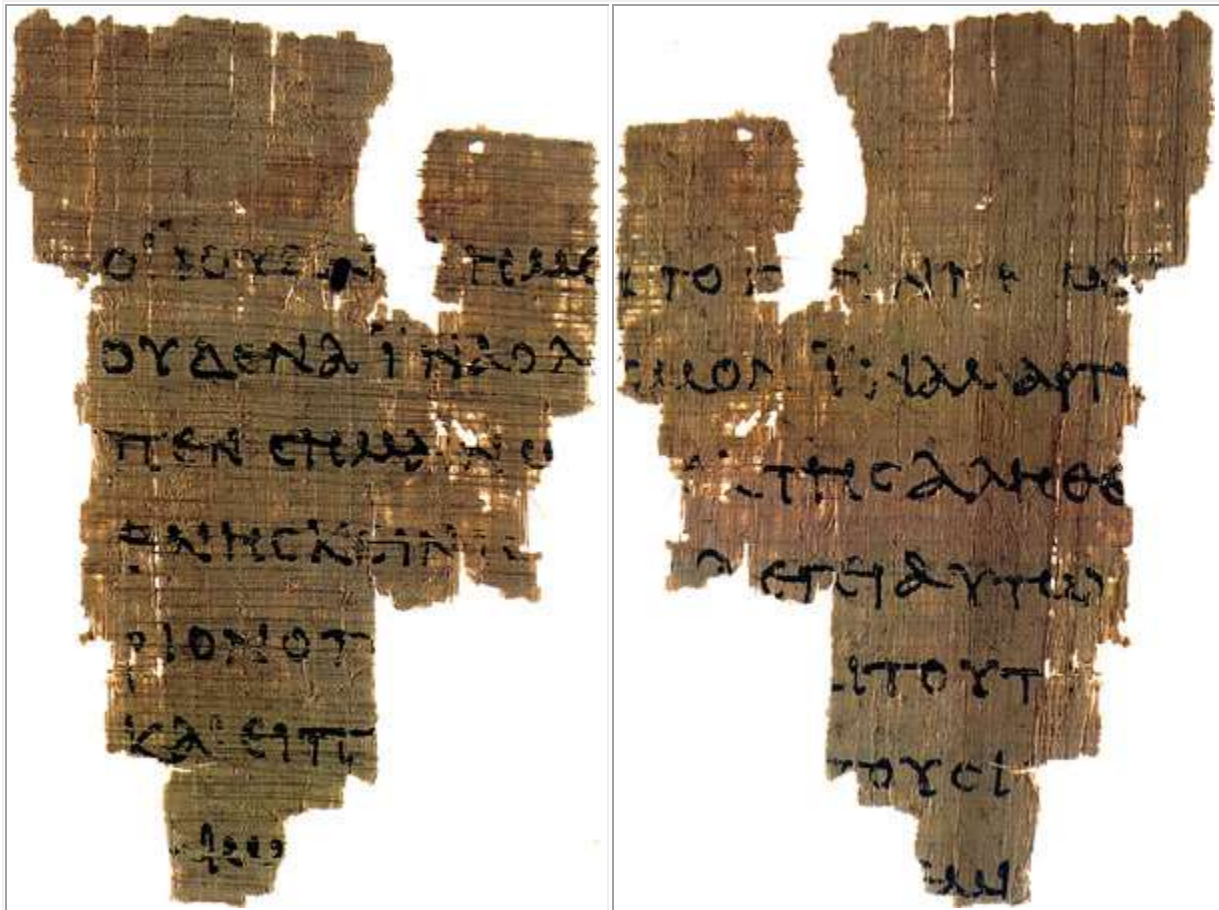 ΟΙ ΙΟΥΔΑΙ ΗΜΕ
ΟΥΔΕΝΑ ΪΝΑ Ο Λ
ΠΕΝ ϹΗΜΑΙΝΩ
ΘΝΗϹΚΕΙΝ ΙϹ
ΡΙΟΝ Ο Π
ΚΑΙ ΕΙΠ
ΤΟ Γ
ϹΜΟΝ ΪΝΑ ΜΑΡΤΥ
ΤΗϹ ΑΛΗΘΕ
ΛΕΓΕΙ ΑΥΤΩ
ΑΙ ΤΟΥΤ
ΤΟΥϹ Ι
ΜΙ